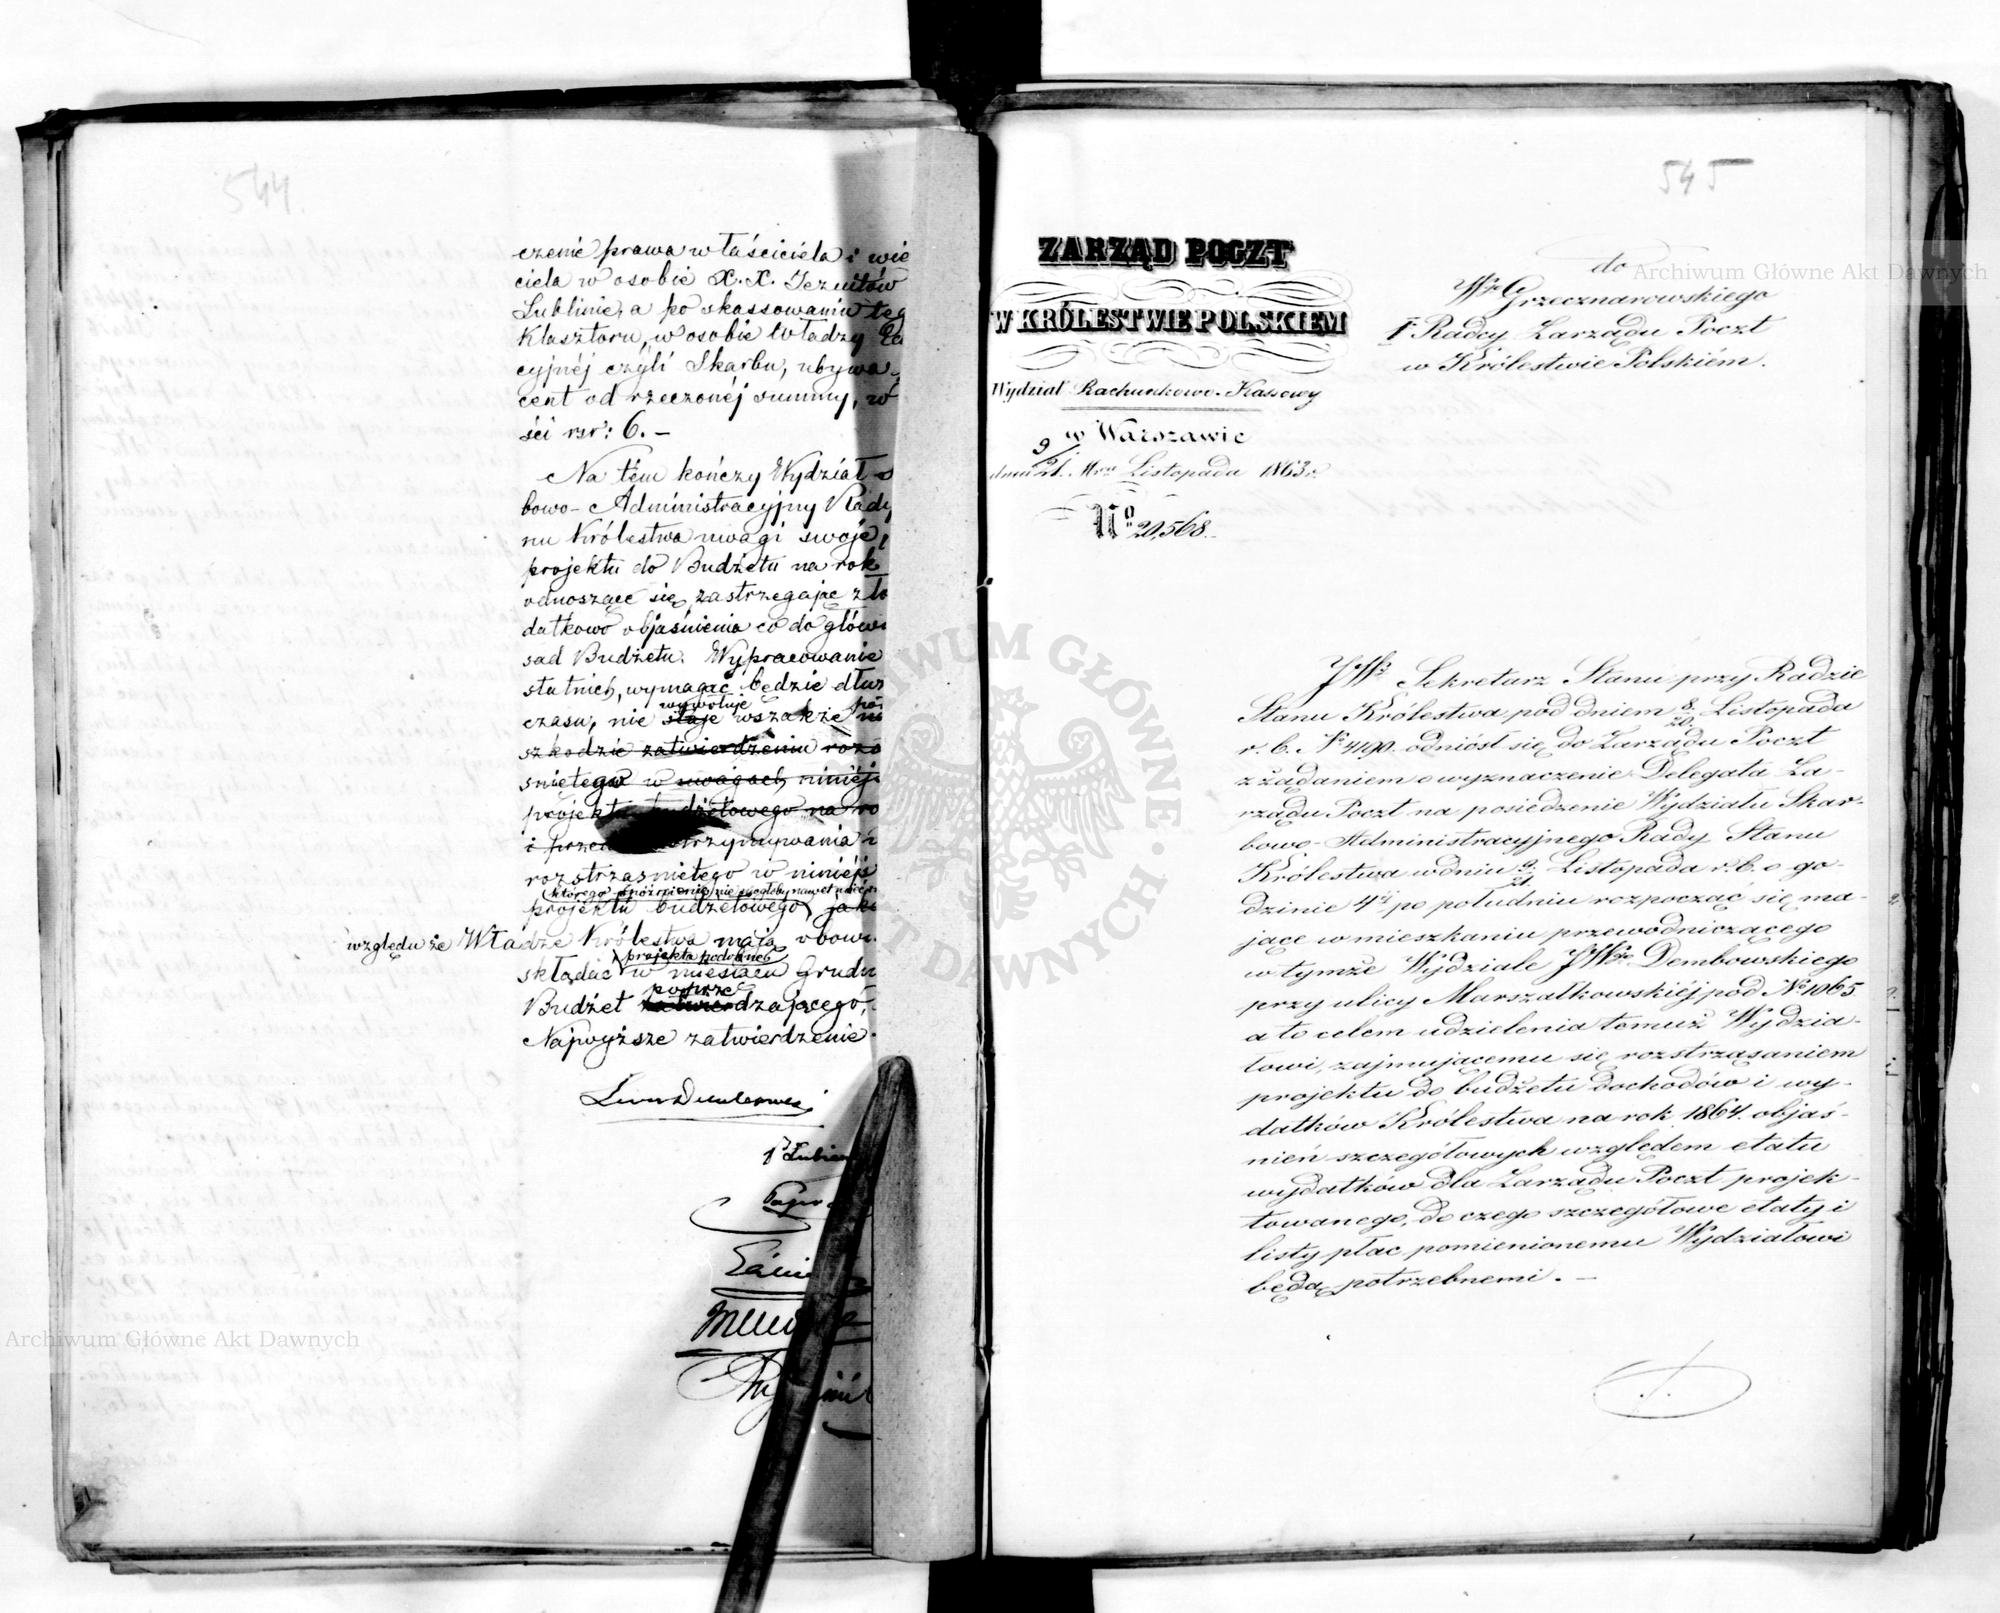 544.
czenie prawa właściciela i wie
ciela w osobie X.X. Jezuitów
Lublinie, a po skassowaniu teg
Klasztoru, w osobie władzy Ed
cyjnéj czyli Skarbu, ubywa
cent od rzeczonéj summy, w
ści rsr: 6. –
Na tém kończy Wydział
bowo-Administracyjny Rady
nu Królestwa uwagi swoje,
projektu do Budżetu na rok
odnoszące się, zastrzegając zło
datkowo objaśnienia co do głów
sad Budżetu. Wypracowanie
statnich, wymagać będzie dłuż
wywołuje
czasu, nie staje wszakże
szkodzie zatwierdzeniu roz
śnietego w uwagach niniéj
projektu budżetowego na ro
i przed trzymywania
rozstrząśnietego w niniéjs
którego spóźnienie nie mogłoby nawet
projektu budżetowego, jak
względu że Władze Królestwa mają obow
projekta podobne
składać w miesiącu Grudn
poprze
Budżet zatwierdzającego,
Najwyższe zatwierdzenie.
Lubien
545
ZARZĄD POCZT
W KRÓLESTWIE POLSKIEM
Wydział Rachunkowo-Kassowy
w Warszawie
dnia 9/21. Mca Listopada 1863 r.
No 20,568.
do
Wgo Grzecznarowskiego
1 Radcy Zarządu Poczt
w Królestwie Polskiém.
JW. Sekretarz Stanu przy Radzie
Stanu Królestwa pod dniem 8/20. Listopada
r. b. No 4190. odniósł się do Zarządu Poczt
z żądaniem o wyznaczenie Delegata Za-
rządu Poczt na posiedzenie Wydziału Skar-
bowo-Administracyjnego Rady Stanu
Królestwa w dniu 9/21 Listopada r. b. o go-
dzinie 4éj po południu rozpocząć się ma-
jące w mieszkaniu przewodniczącego
w tymże Wydziale JWgo Dembowskiego
przy ulicy Marszałkowskiéj pod No 1065.
a to celem udzielenia temuż Wydzia-
łowi, zajmującemu się rozstrząsaniem
projektu do budżetu dochodów i wy-
datków Królestwa na rok 1864. objaś-
nień szczegółowych względem etatu
wydatków dla Zarządu Poczt projek-
towanego, do czego szczegółowe etaty i
listy płac pomienionemu Wydziałowi
będą potrzebnemi. –
Archiwum Główne Akt Dawnych
Archiwum Główne Akt Dawnych
ARCHIWUM GŁÓWNE · AKT DAWNYCH ·